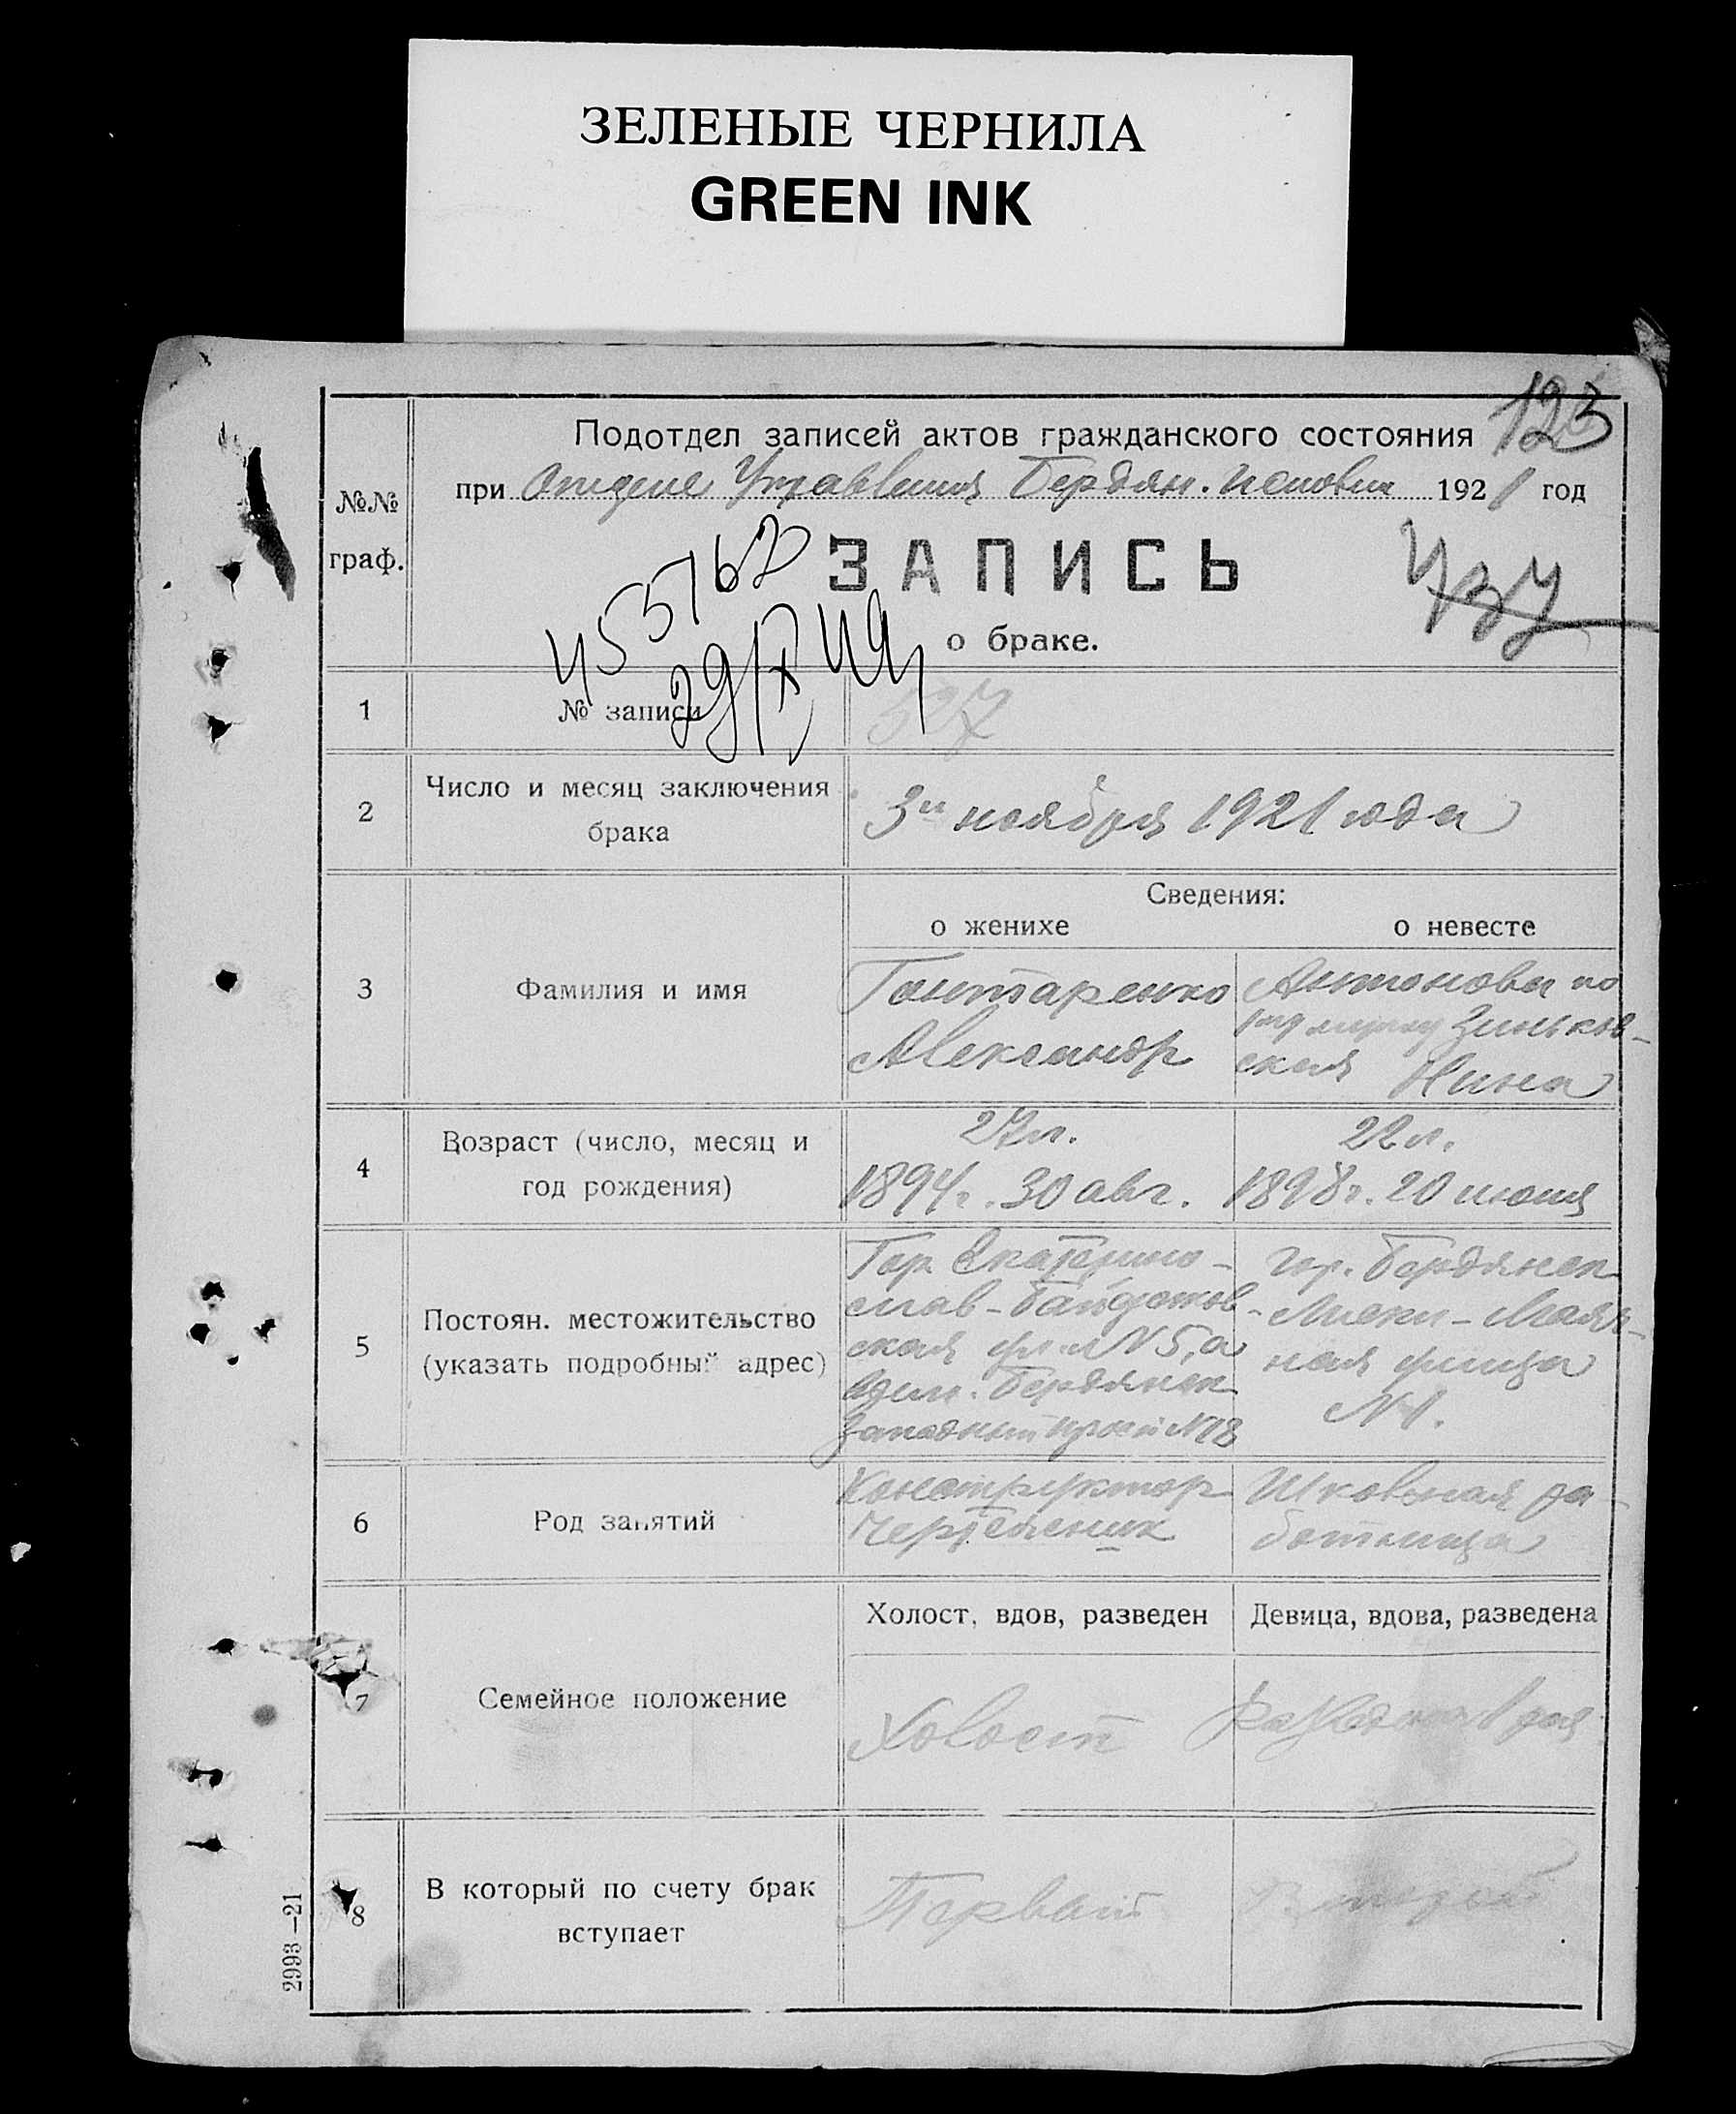 ЗЕЛЕНЫЕ ЧЕРНИЛА
GREEN INK
123
Подотдел записей актов гражданского состояния
при Отделе Управления Бердян. Исполком 1921 год
№№ граф.
ЗАПИСЬ
о браке.
737
455762
1 № записи 527
2 Число и месяц заключения брака
3го ноября 1921 года
Сведения:
о женихе о невесте
3 Фамилия и имя
Гонтаренко Александр
Антонова по мужу Зиньковская Нина
4 Возраст (число, месяц и год рождения)
27 л. 1894 г. 30 авг.
22 л. 1898 г. 20 июня
5 Постоян. местожительство (указать подробный адрес)
Гор. Екатеринослав - ская ул. N 5, а Бердянск Западный N 18
гор. Бердянск - ная улица N 1.
6 Род занятий
Конструктор Чертежник
Школьная работница
7 Семейное положение
Холост, вдов, разведен Девица, вдова, разведена
Холост
8 В который по счету брак вступает
Первый Второй
2993—21